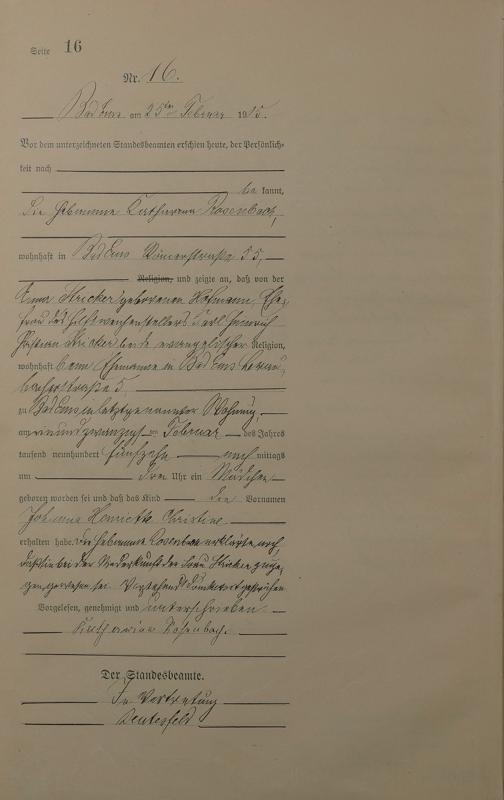 Seite 16
Nr. 16.
Bad Ems am 25ten Februar 1915.
Vor dem unterzeichneten Standesbeamten erschien heute, der Persönlich-
keit nach
bekannt,
die Hebamme Katharina Rosenbach,
wohnhaft in Bad Ems Römerstraße 55,
Religion, und zeigte an, daß von der
Anna Stricker geborenen Hofmann, Ehe-
frau des Hilfsweichenstellers Karl Heinrich
Stricker beide evangelischer Religion,
wohnhaft beim Ehemanne in Bad Ems
straße 5
zu Bad Ems in letztgenannter Wohnung,
am einundzwanzigsten Februar des Jahres
tausend neunhundert fünfzehn nachmittags
um drei Uhr ein Mädchen
geboren worden sei und daß das Kind die Vornamen
Johanna Henriette Christine
erhalten habe. Die Hebamme Rosenbach erklärte noch,
daß sie bei der Niederkunft der Frau Stricker zuge-
gen gewesen sei. Vorstehend
Vorgelesen, genehmigt und unterschrieben
Katharina Rosenbach.
Der Standesbeamte.
In Vertretung